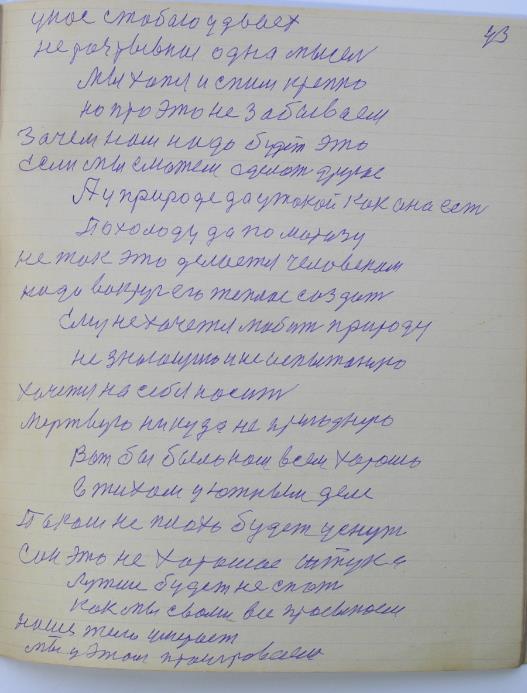 43
у нас с тобою удвает
не
одна мысел
Мы хотя и спим крепко
но про это не забываем
Зачем нам надо будет это
если мы сможем сделат другое
А у природе да у такой как она ест
По холоду да по морозу
не так это делается человеком
надо вокруг его теплое создат
Ему не хочется любит природу
не знающую и не испытанную
хочется на себя носит
мертвую никуда не пригодную
Вот бы было нам всем хорошо
в тихом уютным деле
Таком не плохо будет уснут
Сон это не хорошая штука
лутше будет не спат
как мы своим все
наше тело умирает
мы у этом проигроваем